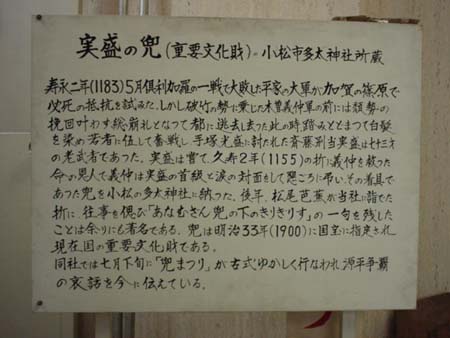 実盛の兜(重要文化財)・小松市多太神社所蔵
寿永二年(1183)5月倶利加羅の一戦で大敗した平家の大軍が加賀の篠原で
必死の抵抗を試みた。しかし破竹の勢に乗じた木曽義仲軍の前には頽勢の
挽回叶わず総崩れとなって都に逃去し去った此の時、踏みとどまって白髪
を染め若者に伍して奮戦し、手塚光盛に討たれた斉藤別当実盛は七十三才
の老武者であった。実盛は嘗て、久寿2年(1155)の折に義仲を救った
命の恩人で義仲は実盛の首級と涙の対面をして懇ころに弔い、その着具で
あった兜を小松の多太神社に納った。後年、松尾芭蕉が当社に詣でた
折に、往事を偲ぶ「あなむざん兜の下のきりぎりす」の一句を残した
ことは余りにも著名である。兜は明治33年(1900)に国宝に指定され
現在国の重要文化財である。
同社では七月下旬に「兜まつり」が古式ゆかしく行なわれ源平争覇
の哀話を今に伝えている。